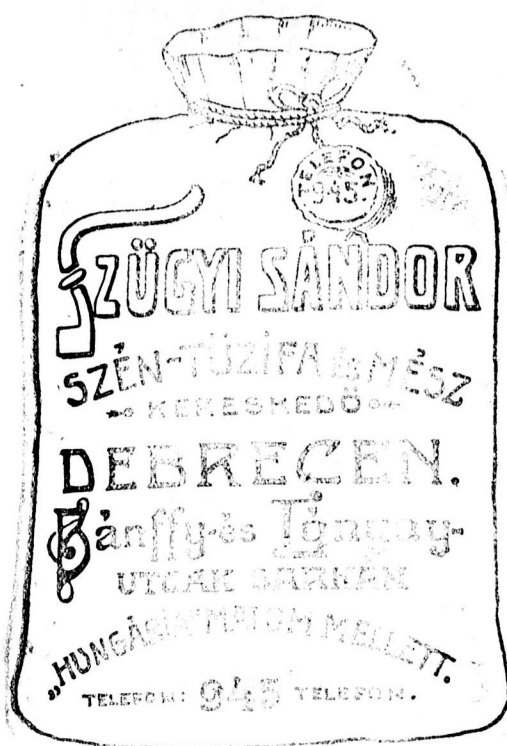 TELEFON
945.
SZÜGYI SÁNDOR
SZÉN-TŰZIFA és MÉSZ
KERESKEDŐ
DEBRECEN.
Bánffy-és
UTCÁK SARKÁN
„HUNGÁRIA" MALOM MELLETT.
TELEFON: 945 TELEFON.